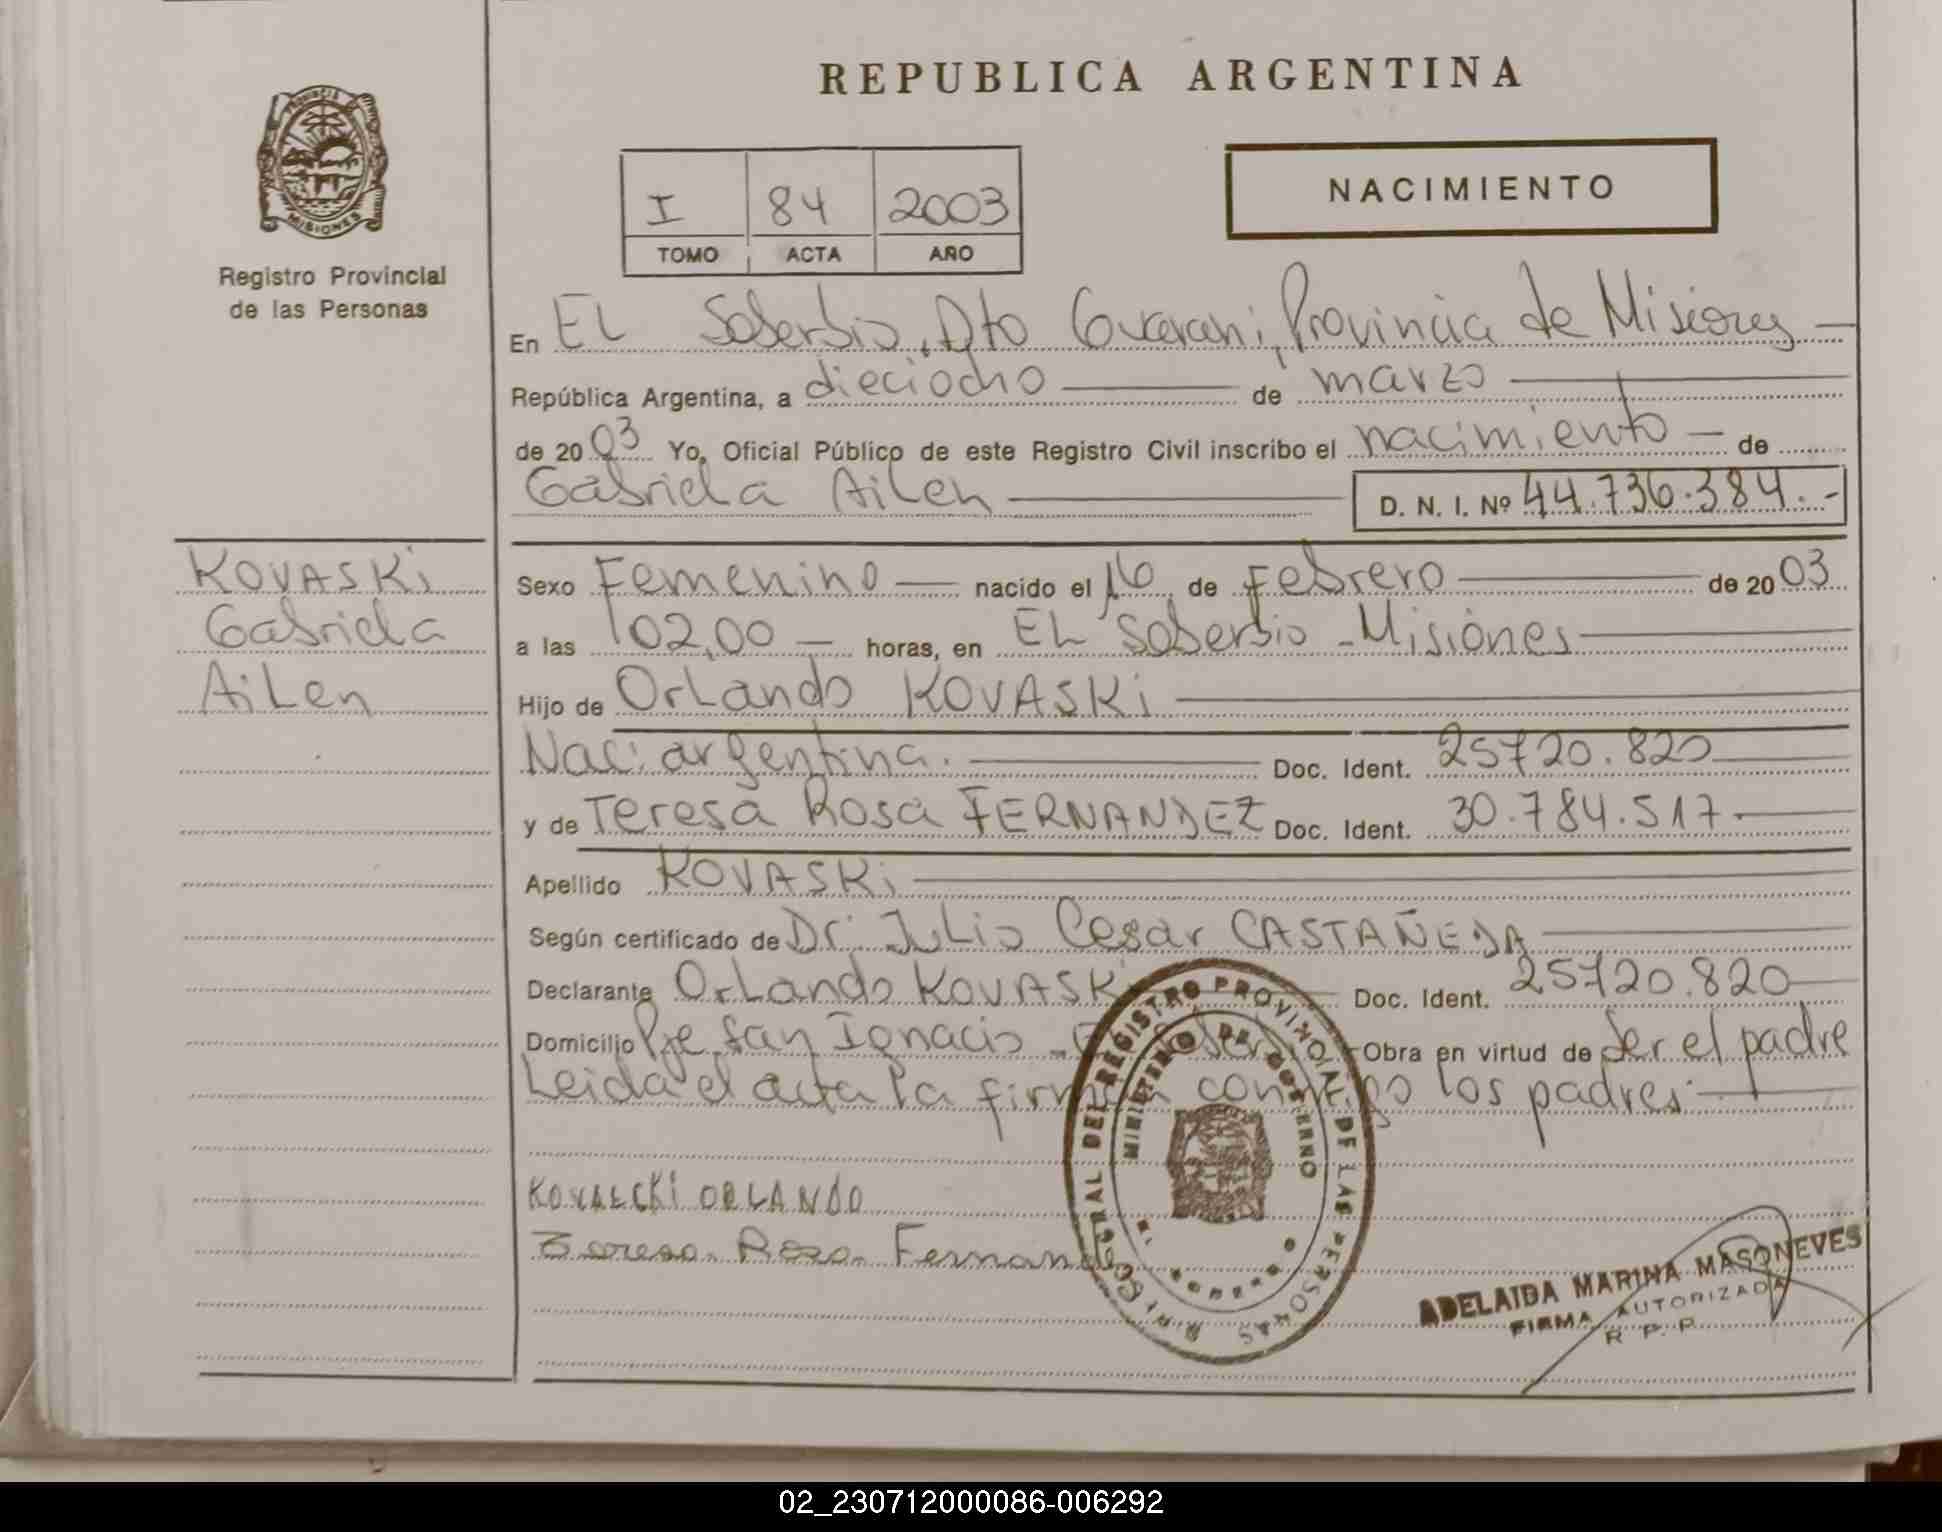 REPUBLICA ARGENTINA
PROVINCIA
MISIONES
Registro Provincial
de las Personas
I 84 2003
TOMO ACTA AÑO
NACIMIENTO
En EL Soberbio, Dto Guarani, Provincia de Misiones
República Argentina, a dieciocho de marzo
de 2003 Yo, Oficial Público de este Registro Civil inscribo el nacimiento de
Gabriela Ailen
D. N. I. Nº 44.736.384.-
KOVASKi
Gabriela
AiLen
Sexo Femenino nacido el 16 de Febrero de 2003
a las 02,00 horas, en EL Soberbio - Misiones
Hijo de Orlando KOVASKi
Naci argentina. Doc. Ident. 25720.820
y de Teresa Rosa FERNANDEZ Doc. Ident. 30.784.517
Apellido KOVASKi
Según certificado de Dr. Julio Cesar CASTAÑEDA
Declarante Orlando KOVASKi Doc. Ident. 25720.820
Domicilio Pje San Ignacio - El Soberbio Obra en virtud de Ser el padre
Leida el acta la firman conmigo los padres
KOVALCKI ORLANDO
Teresa Rosa Fernand
REGISTRO PROVINCIAL DE LAS PERSONAS
MINISTERIO DE GOBIERNO
ADELAIDA MARINA MASONEVES
FIRMA AUTORIZADA
R. P. P.
02_230712000086-006292